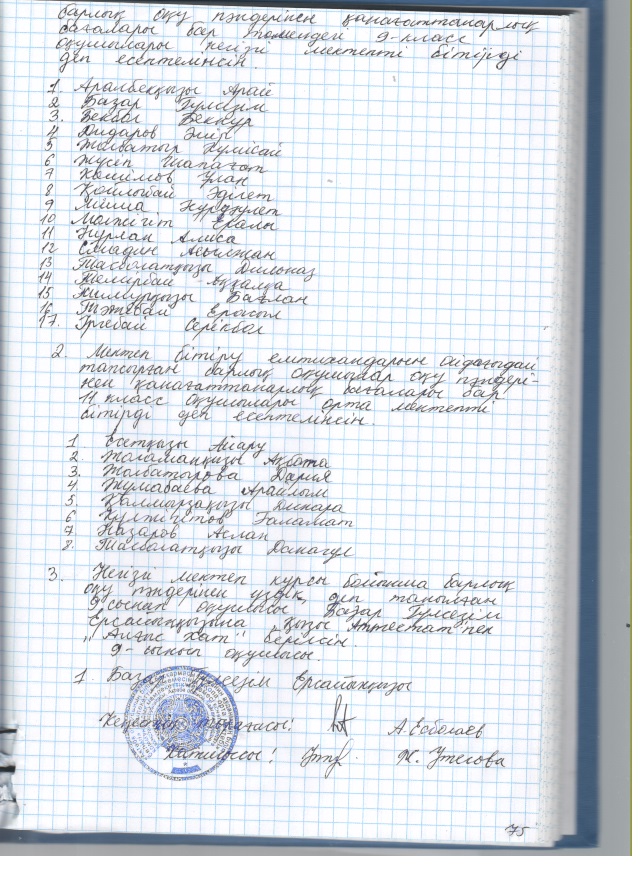 барлық оқу пәндерінен қанағаттанарлық
бағалары бар төмендегі 9-класс
оқушылары негізгі мектепті бітірді
деп есептелінсін.
1. Аралбекқызы Арай
2 Базар Гүлсезім
3. Бекбол Бекнұр
4 Дидаров Әміт
5 Жолбатыр Күмісай
6 Жүсіп Шапағат
7 Көшімов Ұлан
8 Қойлыбай Әділет
9 Нұрдәулет
10 Мәлжігіт Ералы
11 Нұрлан Алиса
12 Асылжан
13 Тасболатқызы Дильназ
14
15 Бағлан
16 Тәжібай Ерасыл
17. Іргебай Серікбол
2. Мектеп бітіру емтихандарын ойдағыдай
тапсырған барлық оқушылар оқу пәндері-
нен қанағаттанарлық бағалары бар
11 класс оқушылары орта мектепті
бітірді деп есептелінсін.
1. Айару
2. Жоламанқызы Ақбота
3. Жолбатырова Дария
4. Жумабаева Арайлым
5. Қалмырзақызы Динара
6 Құлжігітов Ғаламат
7 Назаров Аслан
8. Тасболатқызы Данагүл
3. Негізгі мектеп курсы бойынша барлық
оқу пәндерінен үздік деп танылған
9 сынып оқушысы Базар Гүлсезім
Ерсайынқызына қызыл Аттестат пен
„Алғыс хат" берілсін.
9-сынып оқушысы.
1. Базар Гүлсезім Ерсайынқызы
Кеңестің төрағасы! А. Есболаев
Хатшысы! Ж. Утегова
75